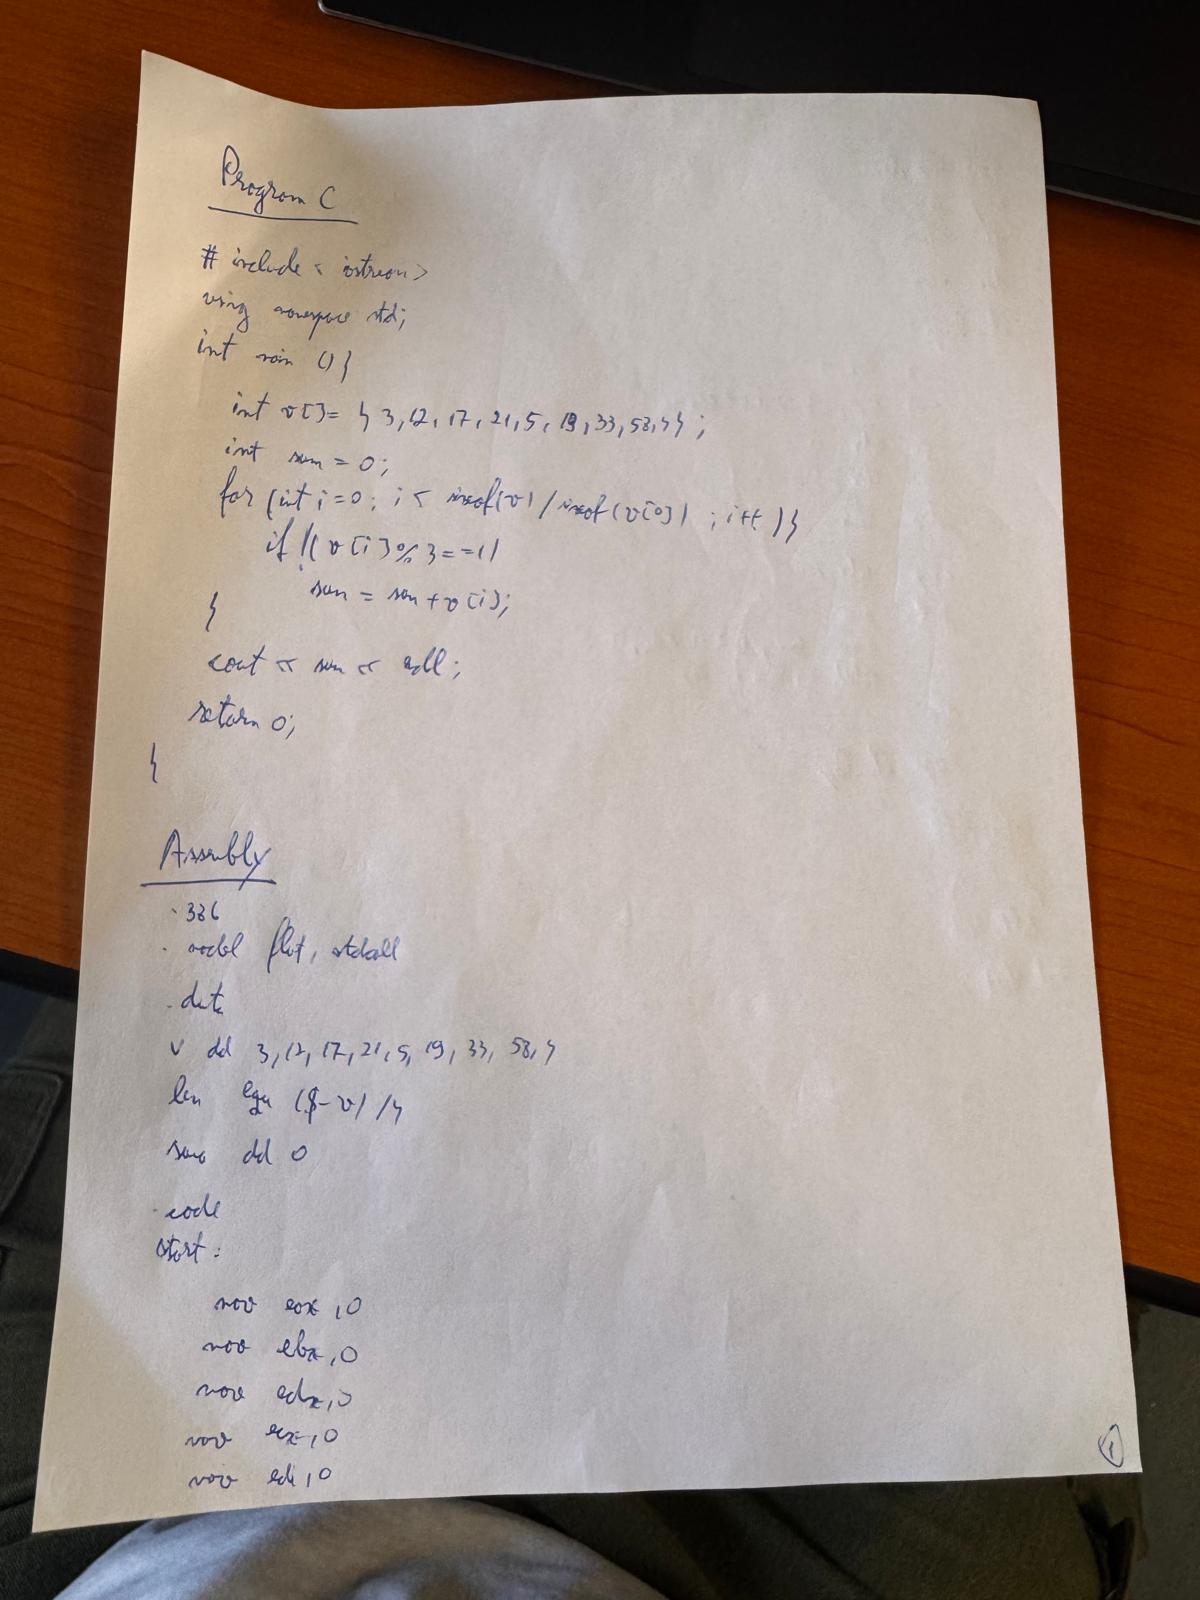 Program C
# include < iostream>
using namespace std;
int main () {
int v[] = { 3, 12, 17, 21, 5, 19, 33, 58, 4 };
int sum = 0;
for (int i=0; i < sizeof(v) / sizeof(v[0]) ; i++ ) {
if !(( v[i] % 3 == 1)
sum = sum + v[i];
}
cout << sum << endl;
return 0;
}
Assembly
.386
.model flat, stdcall
.data
v dd 3, 12, 17, 21, 5, 19, 33, 58, 4
len equ ($-v) /4
suma dd 0
.code
start:
mov eax, 0
mov ebx, 0
mov edx, 0
mov ecx, 0
mov edi, 0
1